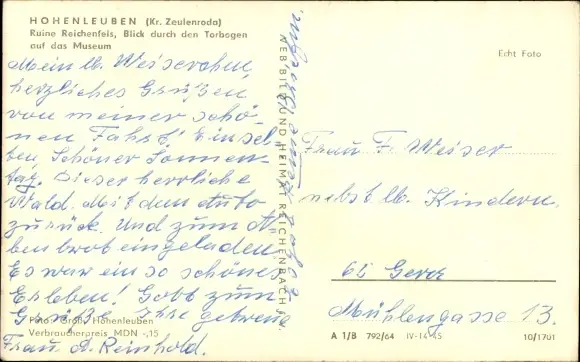 HOHENLEUBEN (Kr. Zeulenroda)
Ruine Reichenfels, Blick durch den Torbogen
auf das Museum
Mein lb. Weiserchen,
herzliches Grüßen
von meiner schö-
nen Fahrt!
ben. Schöner Sonnen-
tag. Dieser herrliche
Wald. Mit dem Auto
zurück. Und zum A-
benbrot eingeladen
Es war ein so schönes
Erleben! Gott zum
Gruße Ihre getreue
Frau A. Reinhold.
Foto: Groß, Hohenleuben
Verbraucherpreis MDN -,15
NEB BILD UND HEIMAT REICHENBACH
Echt Foto
Frau F. Weiser
nebst lb. Kindern,
65 Gera
Mühlengasse 13.
A 1/B 792/64 IV-14-45 10/1701